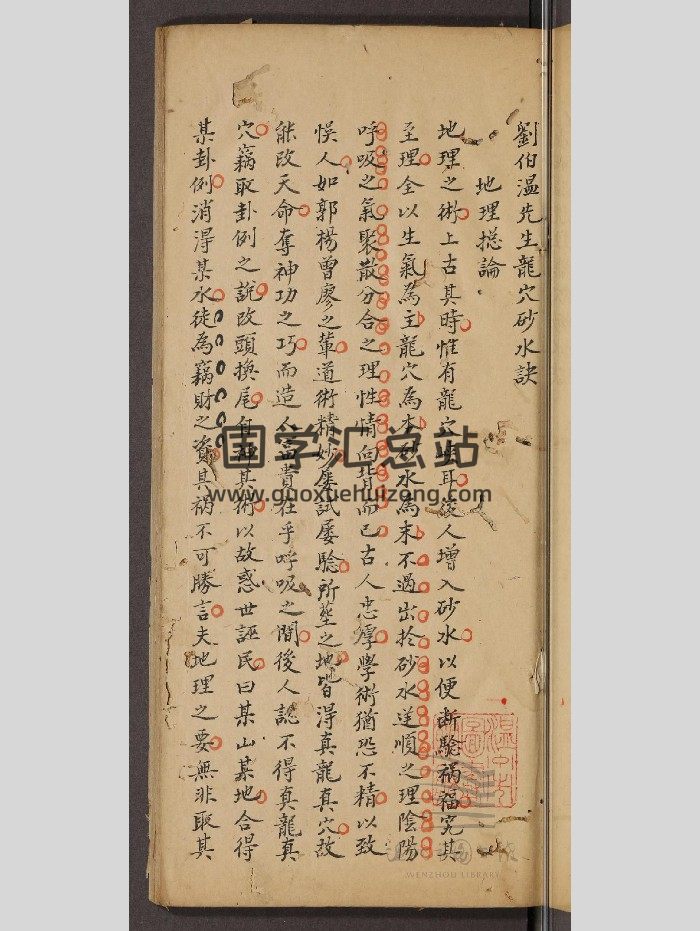 劉伯溫先生龍穴砂水訣
地理總論
地理之術上古其時惟有龍穴耳後人增入砂水以便断驗禍福究其
至理全以生氣為主龍穴為本砂水為末不過出於砂水逆順之理陰陽
呼吸之氣聚散分合之理性情向背而已古人忠厚學術猶恐不精以致
悮人如郭楊曾廖之輩道術精妙屡試屡驗所塟之地皆得真龍真穴故
能改天命奪神功之巧而造人富貴在乎呼吸之間後人認不得真龍真
穴竊取卦例之說改頭換尾自神其術以故惑世誣民曰某山某地合得
某卦例消得某水徒為竊財之資其禍不可勝言夫地理之要無非取其
国学汇总站
www.guoxuehuizong.com
WENZHOU LIBRARY